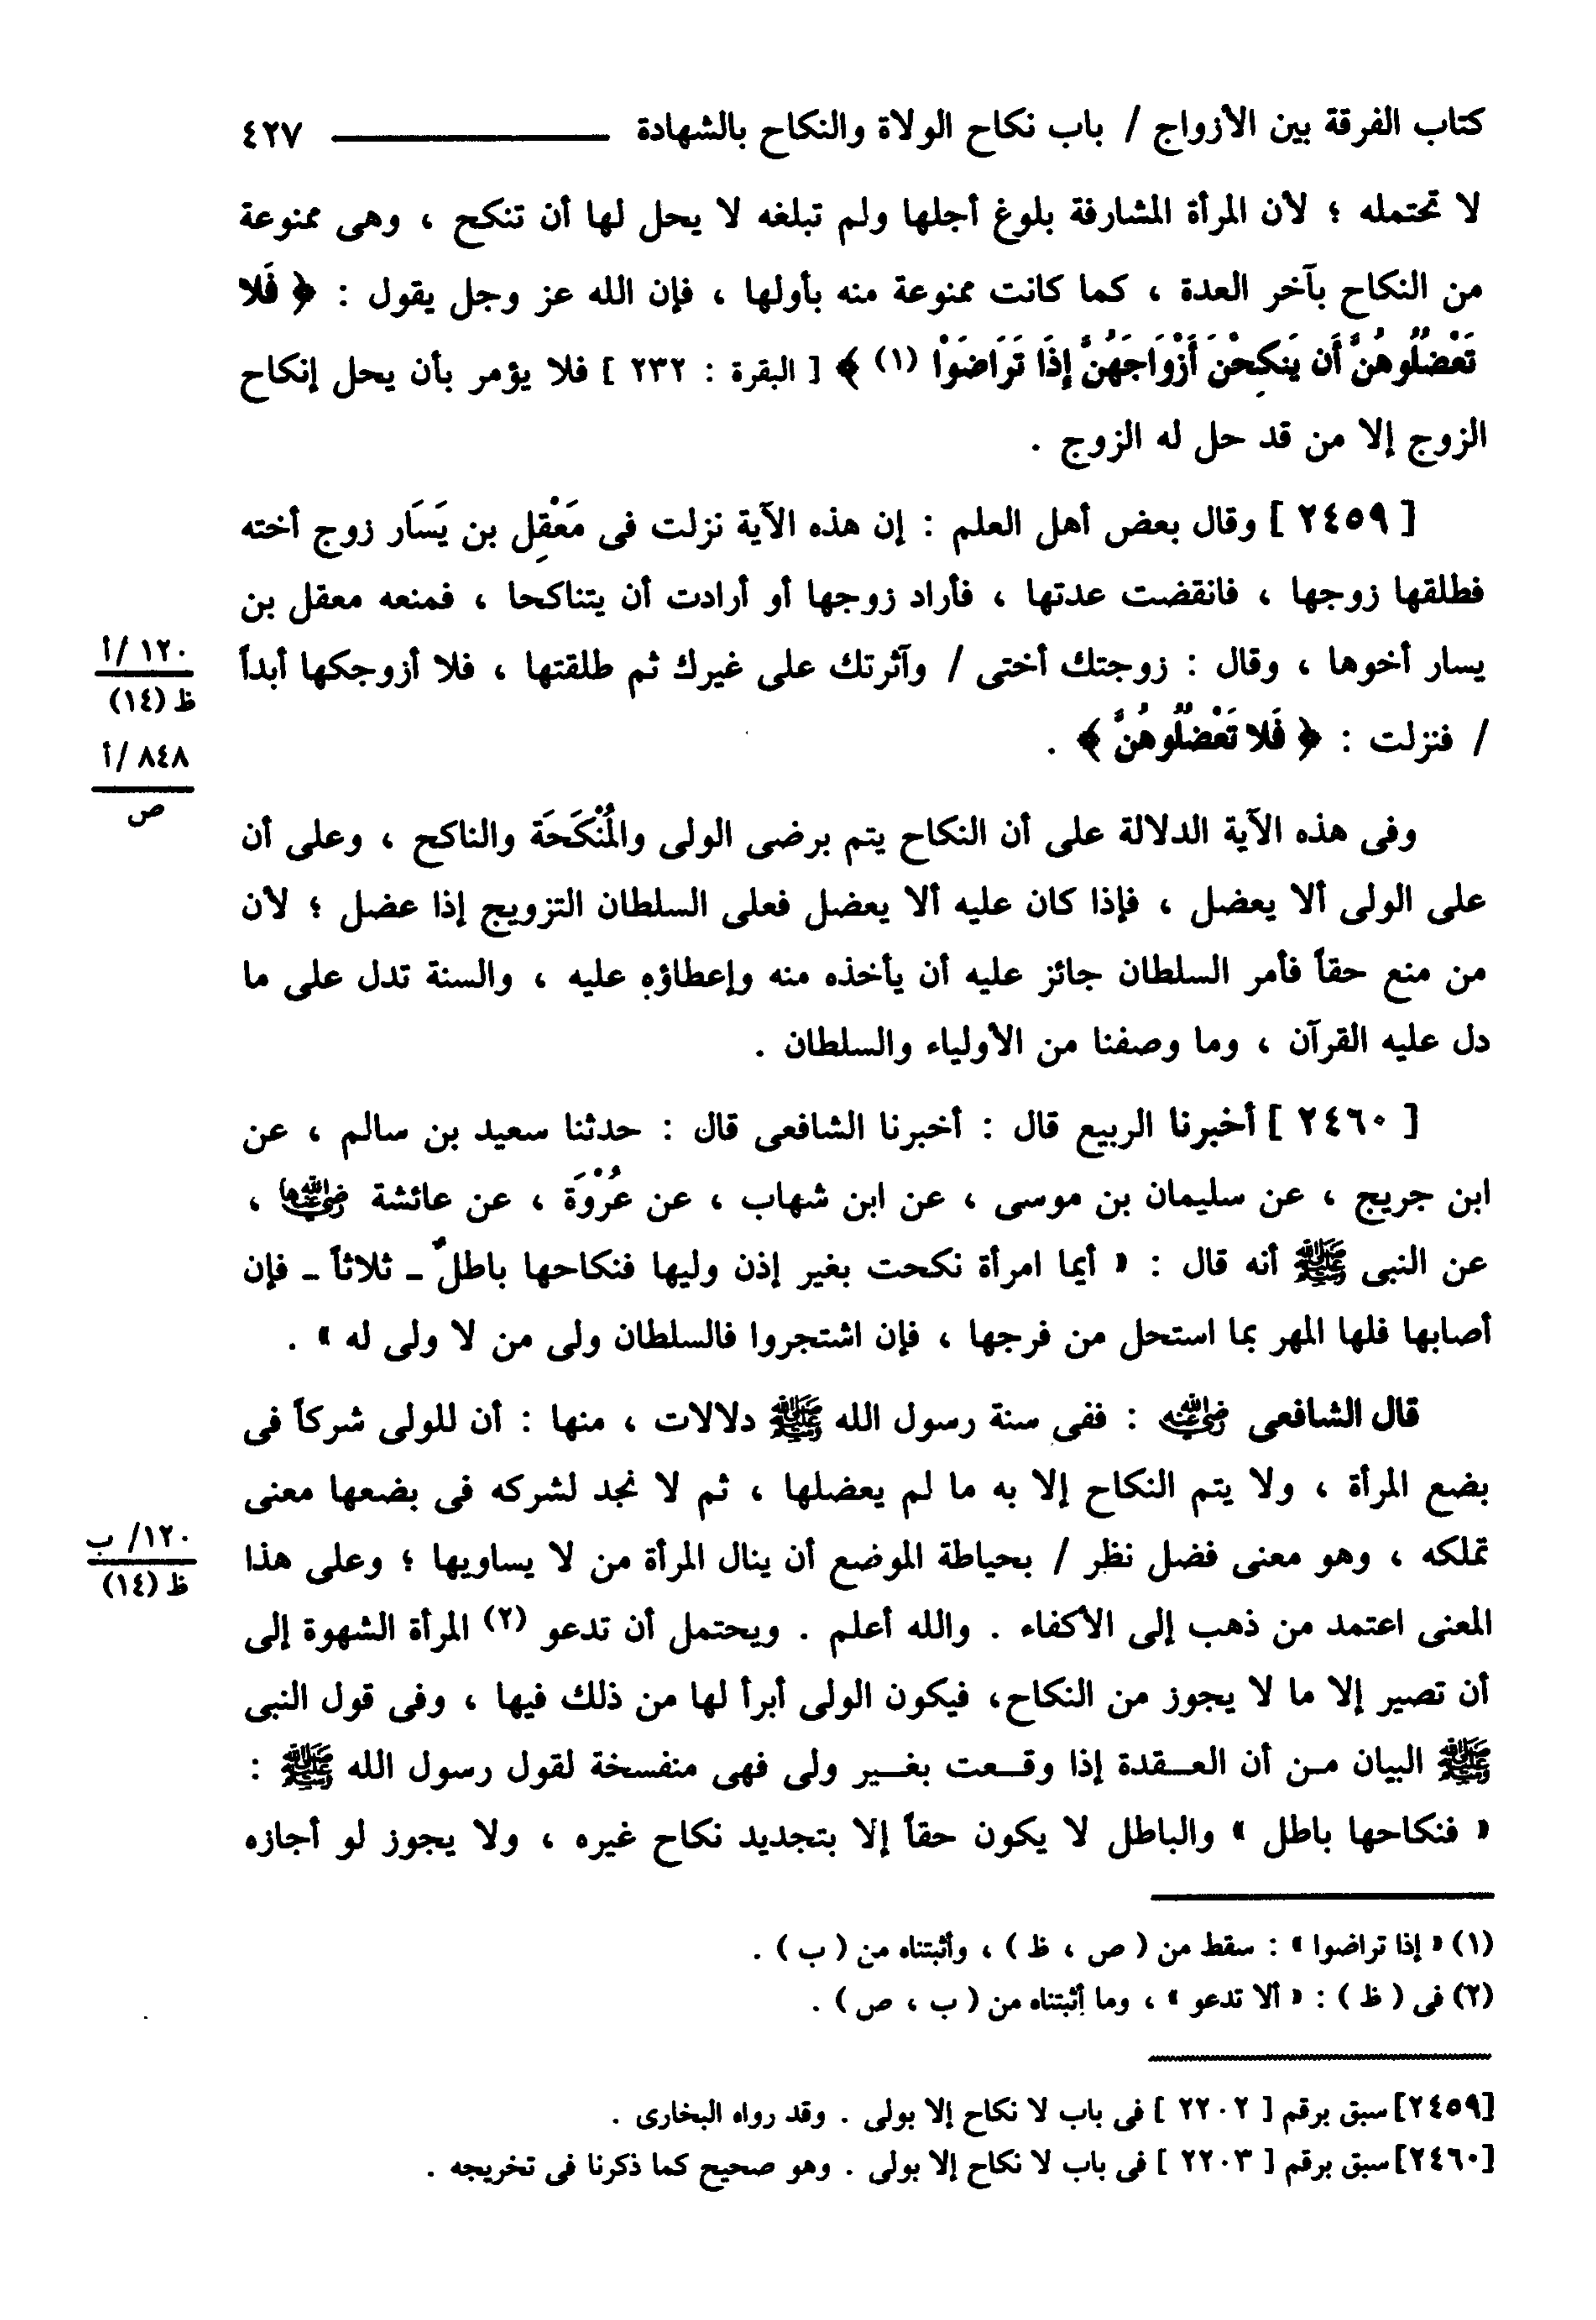 كتاب الفرقة بين الأزواج / باب نكاح الولاة والنكاح بالشهادة ـــــــــــ ٤٢٧
لا تحتمله ؛ لأن المرأة المشارفة بلوغ أجلها ولم تبلغه لا يحل لها أن تنكح ، وهى ممنوعة
من النكاح بآخر العدة ، كما كانت ممنوعة منه بأولها ، فإن الله عز وجل يقول : ﴿ فَلا
تَعْضُلُوهُنَّ أَن يَنكِحْنَ أَزْوَاجَهُنَّ إِذَا تَرَاضَوْا (١) ﴾ [ البقرة : ٢٣٢ ] فلا يؤمر بأن يحل إنكاح
الزوج إلا من قد حل له الزوج .
[ ٢٤٥٩ ] وقال بعض أهل العلم : إن هذه الآية نزلت فى مَعْقِل بن يَسَار زوج أخته
فطلقها زوجها ، فانقضت عدتها ، فأراد زوجها أو أرادت أن يتناكحا ، فمنعه معقل بن
يسار أخوها ، وقال : زوجتك أختى / وآثرتك على غيرك ثم طلقتها ، فلا أزوجكها أبداً
١٢٠ /أ
ظ (١٤)
/ فنزلت : ﴿ فَلا تَعْضُلُوهُنَّ ﴾ .
٨٤٨ /أ
ص
وفى هذه الآية الدلالة على أن النكاح يتم برضى الولى والمُنْكَحَة والناكح ، وعلى أن
على الولى ألا يعضل ، فإذا كان عليه ألا يعضل فعلى السلطان التزويج إذا عضل ؛ لأن
من منع حقاً فأمر السلطان جائز عليه أن يأخذه منه وإعطاؤه عليه ، والسنة تدل على ما
دل عليه القرآن ، وما وصفنا من الأولياء والسلطان .
[ ٢٤٦٠ ] أخبرنا الربيع قال : أخبرنا الشافعى قال : حدثنا سعيد بن سالم ، عن
ابن جريج ، عن سليمان بن موسى ، عن ابن شهاب ، عن عُرْوَة ، عن عائشة رضي الله عنها ،
عن النبى ﷺ أنه قال : « أيما امرأة نكحت بغير إذن وليها فنكاحها باطلٌ ـ ثلاثاً ـ فإن
أصابها فلها المهر بما استحل من فرجها ، فإن اشتجروا فالسلطان ولى من لا ولى له » .
قال الشافعى رضي الله عنه : ففى سنة رسول الله ﷺ دلالات ، منها : أن للولى شركاً فى
بضع المرأة ، ولا يتم النكاح إلا به ما لم يعضلها ، ثم لا نجد لشركه فى بضعها معنى
تملكه ، وهو معنى فضل نظر / بحياطة الموضع أن ينال المرأة من لا يساويها ؛ وعلى هذا
١٢٠/ ب
ظ (١٤)
المعنى اعتمد من ذهب إلى الأكفاء . والله أعلم . ويحتمل أن تدعو (٢) المرأة الشهوة إلى
أن تصير إلا ما لا يجوز من النكاح، فيكون الولى أبرأ لها من ذلك فيها ، وفى قول النبى
ﷺ البيان مـن أن العـــقدة إذا وقــعت بغـــير ولى فهى منفسخة لقول رسول الله ﷺ :
« فنكاحها باطل » والباطل لا يكون حقاً إلا بتجديد نكاح غيره ، ولا يجوز لو أجازه
(١) « إذا تراضوا » : سقط من ( ص ، ظ ) ، وأثبتناه من ( ب ) .
(٢) فى ( ظ ) : « ألا تدعو » ، وما أثبتناه من ( ب ، ص ) .
[٢٤٥٩] سبق برقم [ ٢٢٠٢ ] فى باب لا نكاح إلا بولى . وقد رواه البخارى .
[٢٤٦٠] سبق برقم [ ٢٢٠٣ ] فى باب لا نكاح إلا بولى . وهو صحيح كما ذكرنا فى تخريجه .